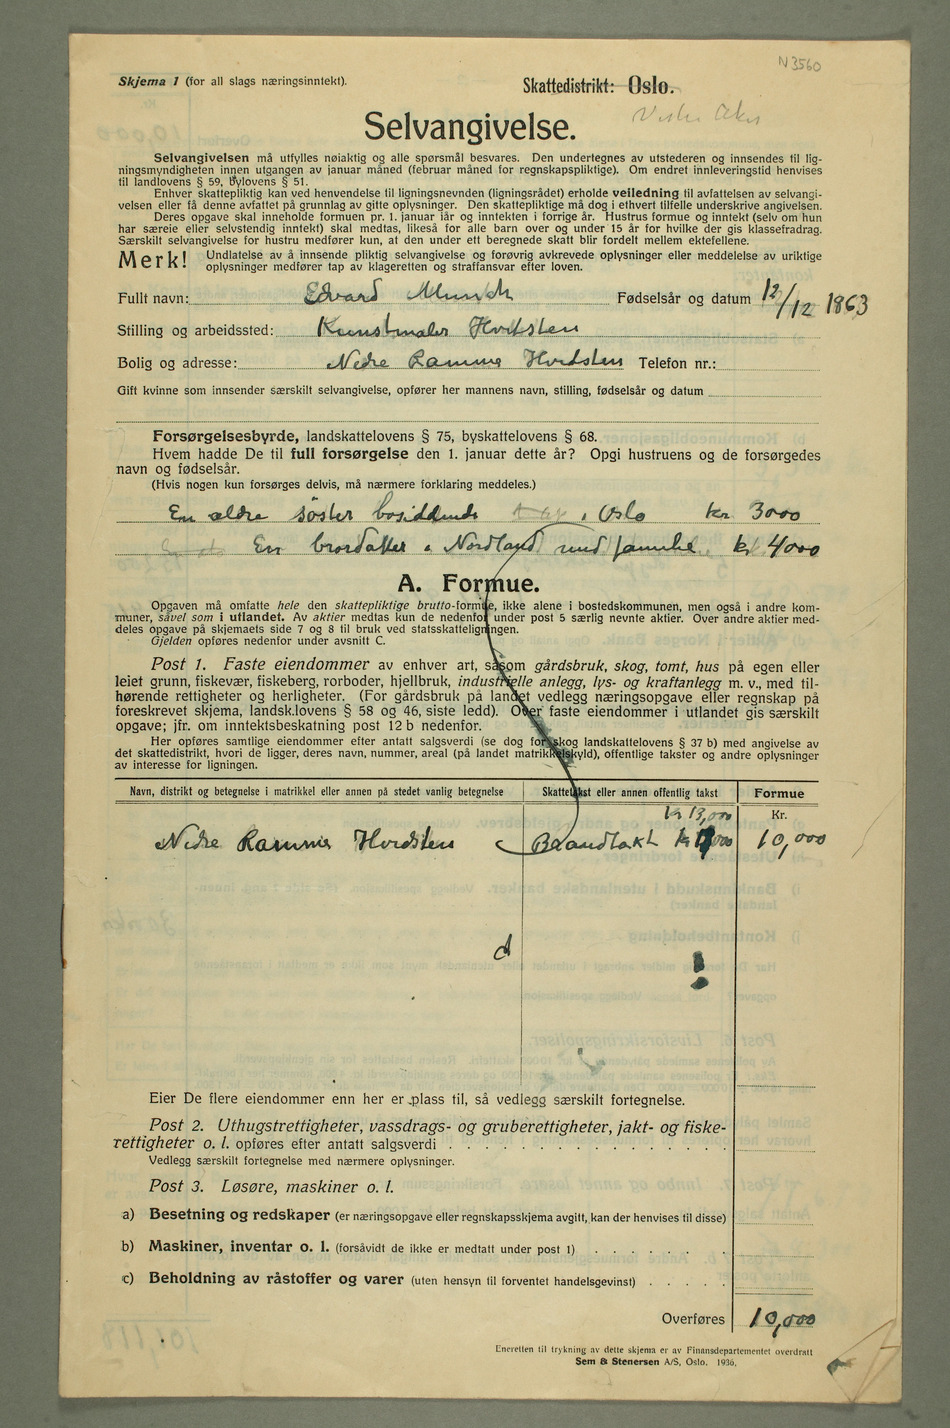 N 3560
Skjema 1 (for all slags næringsinntekt).
Skattedistrikt: Oslo.
Vestre Aker
Selvangivelse.
Selvangivelsen må utfylles nøiaktig og alle spørsmål besvares. Den undertegnes av utstederen og innsendes til lig-
ningsmyndigheten innen utgangen av januar måned (februar måned for regnskapspliktige). Om endret innleveringstid henvises
til landlovens § 59, bylovens § 51.
Enhver skattepliktig kan ved henvendelse til ligningsnevnden (ligningsrådet) erholde veiledning til avfattelsen av selvangi-
velsen eller få denne avfattet på grunnlag av gitte oplysninger. Den skattepliktige må dog i ethvert tilfelle underskrive angivelsen.
Deres opgave skal inneholde formuen pr. 1. januar iår og inntekten i forrige år. Hustrus formue og inntekt (selv om hun
har særeie eller selvstendig inntekt) skal medtas, likeså for alle barn over og under 15 år for hvilke der gis klassefradrag.
Særskilt selvangivelse for hustru medfører kun, at den under ett beregnede skatt blir fordelt mellem ektefellene.
Merk! Undlatelse av å innsende pliktig selvangivelse og forøvrig avkrevede oplysninger eller meddelelse av uriktige
oplysninger medfører tap av klageretten og straffansvar efter loven.
Fullt navn: Edvard Munch Fødselsår og datum 12/12 1863
Stilling og arbeidssted: Kunstmaler Hvitsten
Bolig og adresse: Nedre Ramme Hvidsten Telefon nr.:
Gift kvinne som innsender særskilt selvangivelse, opfører her mannens navn, stilling, fødselsår og datum
Forsørgelsesbyrde, landskattelovens § 75, byskattelovens § 68.
Hvem hadde De til full forsørgelse den 1. januar dette år? Opgi hustruens og de forsørgedes
navn og fødselsår.
(Hvis nogen kun forsørges delvis, må nærmere forklaring meddeles.)
En ældre søster bosiddende i Oslo kr 3000
En brordatter i Nordland med familie kr 4000
A. Formue.
Opgaven må omfatte hele den skattepliktige brutto-formue, ikke alene i bostedskommunen, men også i andre kom-
muner, såvel som i utlandet. Av aktier medtas kun de nedenfor under post 5 særlig nevnte aktier. Over andre aktier med-
deles opgave på skjemaets side 7 og 8 til bruk ved statsskatteligningen.
Gjelden opføres nedenfor under avsnitt C.
Post 1. Faste eiendommer av enhver art, såsom gårdsbruk, skog, tomt, hus på egen eller
leiet grunn, fiskevær, fiskeberg, rorboder, hjellbruk, industrielle anlegg, lys- og kraftanlegg m. v., med til-
hørende rettigheter og herligheter. (For gårdsbruk på landet vedlegg næringsopgave eller regnskap på
foreskrevet skjema, landsk.lovens § 58 og 46, siste ledd). Over faste eiendommer i utlandet gis særskilt
opgave; jfr. om inntektsbeskatning post 12 b nedenfor.
Her opføres samtlige eiendommer efter antatt salgsverdi (se dog for skog landskattelovens § 37 b) med angivelse av
det skattedistrikt, hvori de ligger, deres navn, nummer, areal (på landet matrikkelskyld), offentlige takster og andre oplysninger
av interesse for ligningen.
Navn, distrikt og betegnelse i matrikkel eller annen på stedet vanlig betegnelse Skattetakst eller annen offentlig takst Formue
kr 13,000 Kr.
Nedre Ramme Hvidsten Brandtakt kr 10,000
Eier De flere eiendommer enn her er plass til, så vedlegg særskilt fortegnelse.
Post 2. Uthugstrettigheter, vassdrags- og gruberettigheter, jakt- og fiske-
rettigheter o. l. opføres efter antatt salgsverdi . . . . . . . . . . . . . .
Vedlegg særskilt fortegnelse med nærmere oplysninger.
Post 3. Løsøre, maskiner o. l.
a) Besetning og redskaper (er næringsopgave eller regnskapsskjema avgitt, kan der henvises til disse)
b) Maskiner, inventar o. l. (forsåvidt de ikke er medtatt under post 1) . . . . . . .
c) Beholdning av råstoffer og varer (uten hensyn til forventet handelsgevinst) . . . . .
Overføres 10,000
Eneretten til trykning av dette skjema er av Finansdepartementet overdratt
Sem & Stenersen A/S, Oslo. 1936.